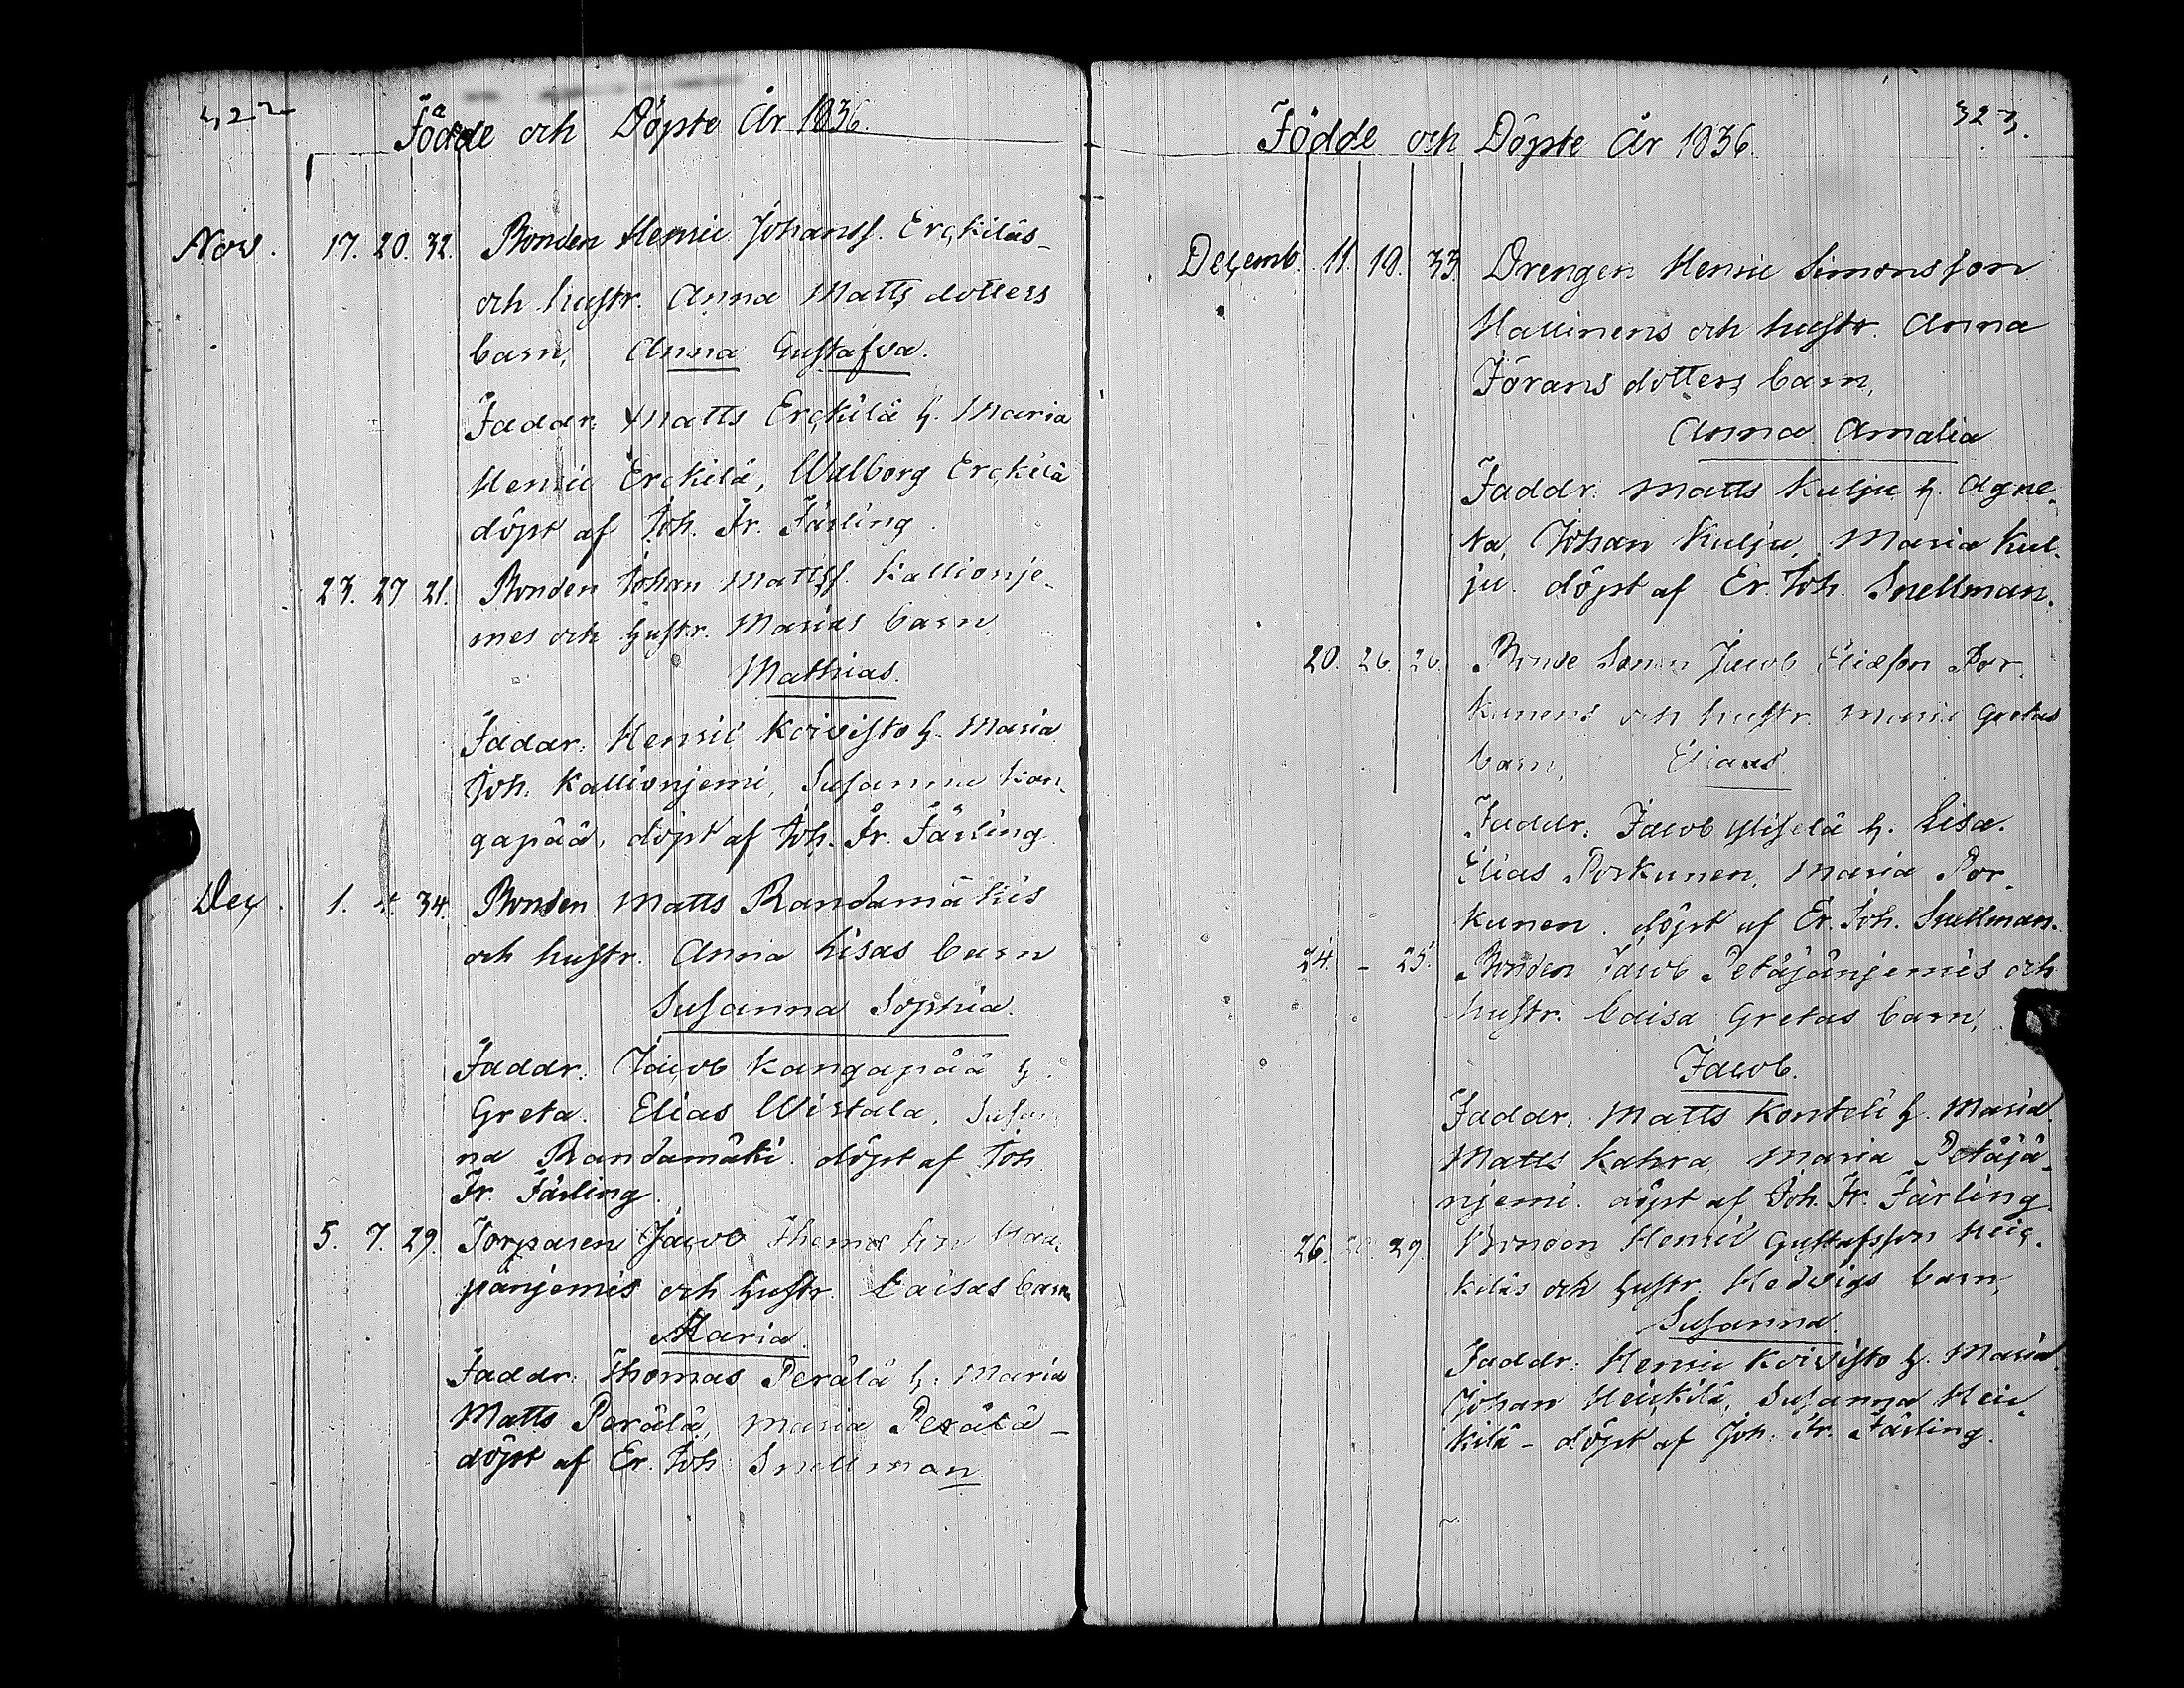 322
Födde och Döpte År 1836.
Nov. 17. 20. 32. Bonden Henric Johanss. Erckiläs-
och hustr. Anna Matts dotters
barn, Anna Gustafva.
Faddr: Matts Erckilä h. Maria
Henric Erckilä, Walborg Erckilä
döpt af Joh. Fr. Färling.
23. 27 21. Bonden Johan Mattss. Kallionje-
mes och hustr. Marias barn,
Mathias.
Faddr: Henric Koivisto h. Maria
Joh. Kallionjemi, Susanna Kan-
gapää, döpt af Joh. Fr. Färling.
Dec. 1. 4. 34. Bonden Matts Randamäkis
och hustr. Anna Lisas barn
Susanna Sophia.
Faddr: Jacob Kangapää h.
Greta. Elias Wirtala, Susan
na Randamäki. döpt af Joh.
Fr. Färling.
5. 7. 29. Torparen Jacob
panjemis och hustr. Caisas barn
Maria.
Faddr: Thomas Perälä h. Maria
Matts Perälä, Maria Perälä -
döpt af Er. Joh. Snellman.
323.
Födde och Döpte År 1836.
Decemb. 11. 18. 33. Drengen Henric Simonsson
Hallinens och hustr. Anna
Jörans dotters barn,
Anna Amalia
Faddr: Matts Kulju h. Agne-
ta, Johan Kulju, Maria Kul-
ju. döpt af Er. Joh. Snellman.
20. 26. 26. Bonde Sonen Jacob Eliæson Por-
kunens och hustr. Maria Gretas
barn, Elias.
Faddr: Jacob h. Lisa.
Elias Porkunen, Maria Por-
kunen. döpt af Er. Joh. Snellman.
24. - 25. Bonden Jacob Petäjänjemis och
hustr. Caisa Gretas barn,
Jacob.
Faddr. Matts Konteli h. Maria.
Matts Kahra, Maria Petäjä-
njemi. döpt af Joh. Fr. Färling.
26. 29. Bonden Henric Gustafsson Heic-
kiläs och hustr. Hedvigs barn,
Susanna.
Faddr: Henric Koivisto h. Maria.
Johan Heickilä, Susanna Heic-
kilä - döpt af Joh. Fr. Färling.